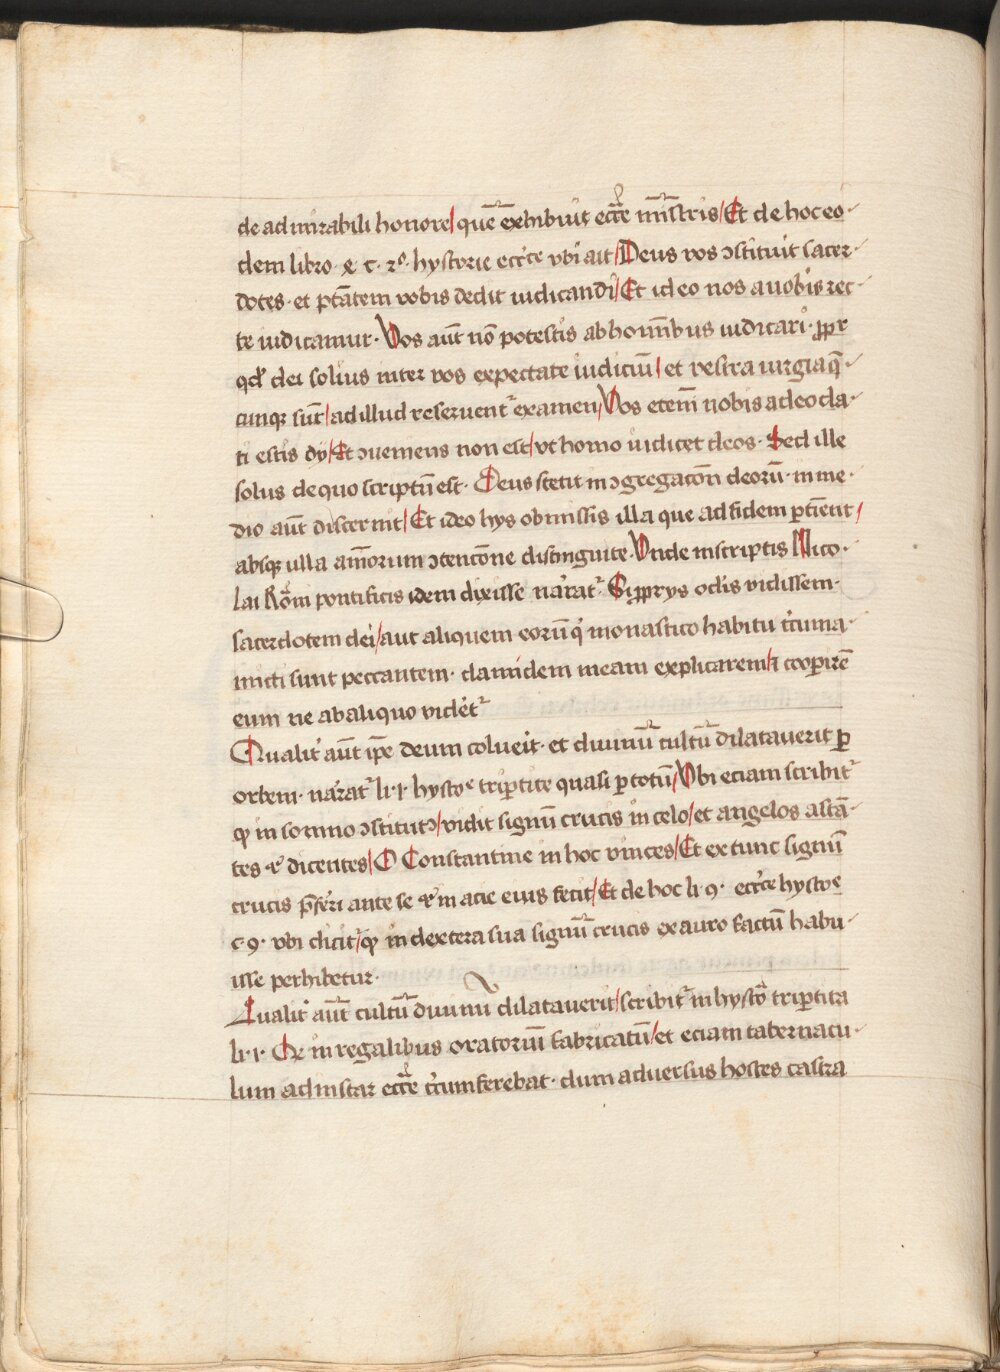 de admirabili honore/ quē exhibuit eccͤ mīstris/ Et de hoc eo-
dem libro · x · c · 2º · hystorie eccͤ vbi ait/ Deus vos ↄstituit sacer-
dotes · et ptātem vobis dedit iudicandi/ Et ideo nos a uobis rec-
te iudicamur · Vos aūt nō potestis ab homībus iudicari · ꝓpt
qđ dei solius inter vos expectate iudiciū/ et vestra iurgia q̄-
cunqꝫ sūt/ ad illud reseruent᷑ examen/ Vos etem̄ nobis a deo da-
ti estis dij/ Et ↄueniens non est/ vt homo iudicet deos · Sed ille
solus de quo scriptū est · Deus stetit in ↄgregacōn deorū · in me-
dio aūt discernit/ Et ideo hys obmissis illa que ad fidem ꝑtiēnt/
absqꝫ ulla aīmorum ↄtencōne distinguite · Vnde in scriptis Nico-
lai Rōm pontificis idem dixisse narrat᷑ · Si ꝓprijs oclis vidissem
sacerdotem dei/ aut aliquem eorū qͥ monastico habitu c̓cuma-
micti sunt peccantem · clamidem meam explicarem/ ⁊ cooperirē
eum ne ab aliquo videret᷑
Qualit̓ aūt ipē deum coluerit · et diuinū cultū dilatauerit ꝑ
orbem · narrat᷑ li · i · hystoͤ tripertite quasi ꝑ totū/ Vbi eciam scribit᷑
ꝙ in somno ↄstitutꝰ/ vidit signū crucis in celo/ et angelos astā-
tes ⁊ dicentes/ O Constantine in hoc vinces/ Et ex tunc signū
crucis p̄ferri ante se ⁊ in acie eius fecit/ Et de hoc li · 9 · eccͤ hystoͤ
c · 9 · vbi dicit᷑/ ꝙ in dextera sua signū crucis ex auro factū habu-
isse perhibetur ·
Qualit̓ aūt cultū diuinū dilatauerit/ scribit᷑ in hystoͬ tripertita
li · i · Qꝛ in regalibus oratoriū fabricatū/ et eciam tabernacu-
lum ad instar eccͤ c̓cumferebat · dum aduersus hostes castra